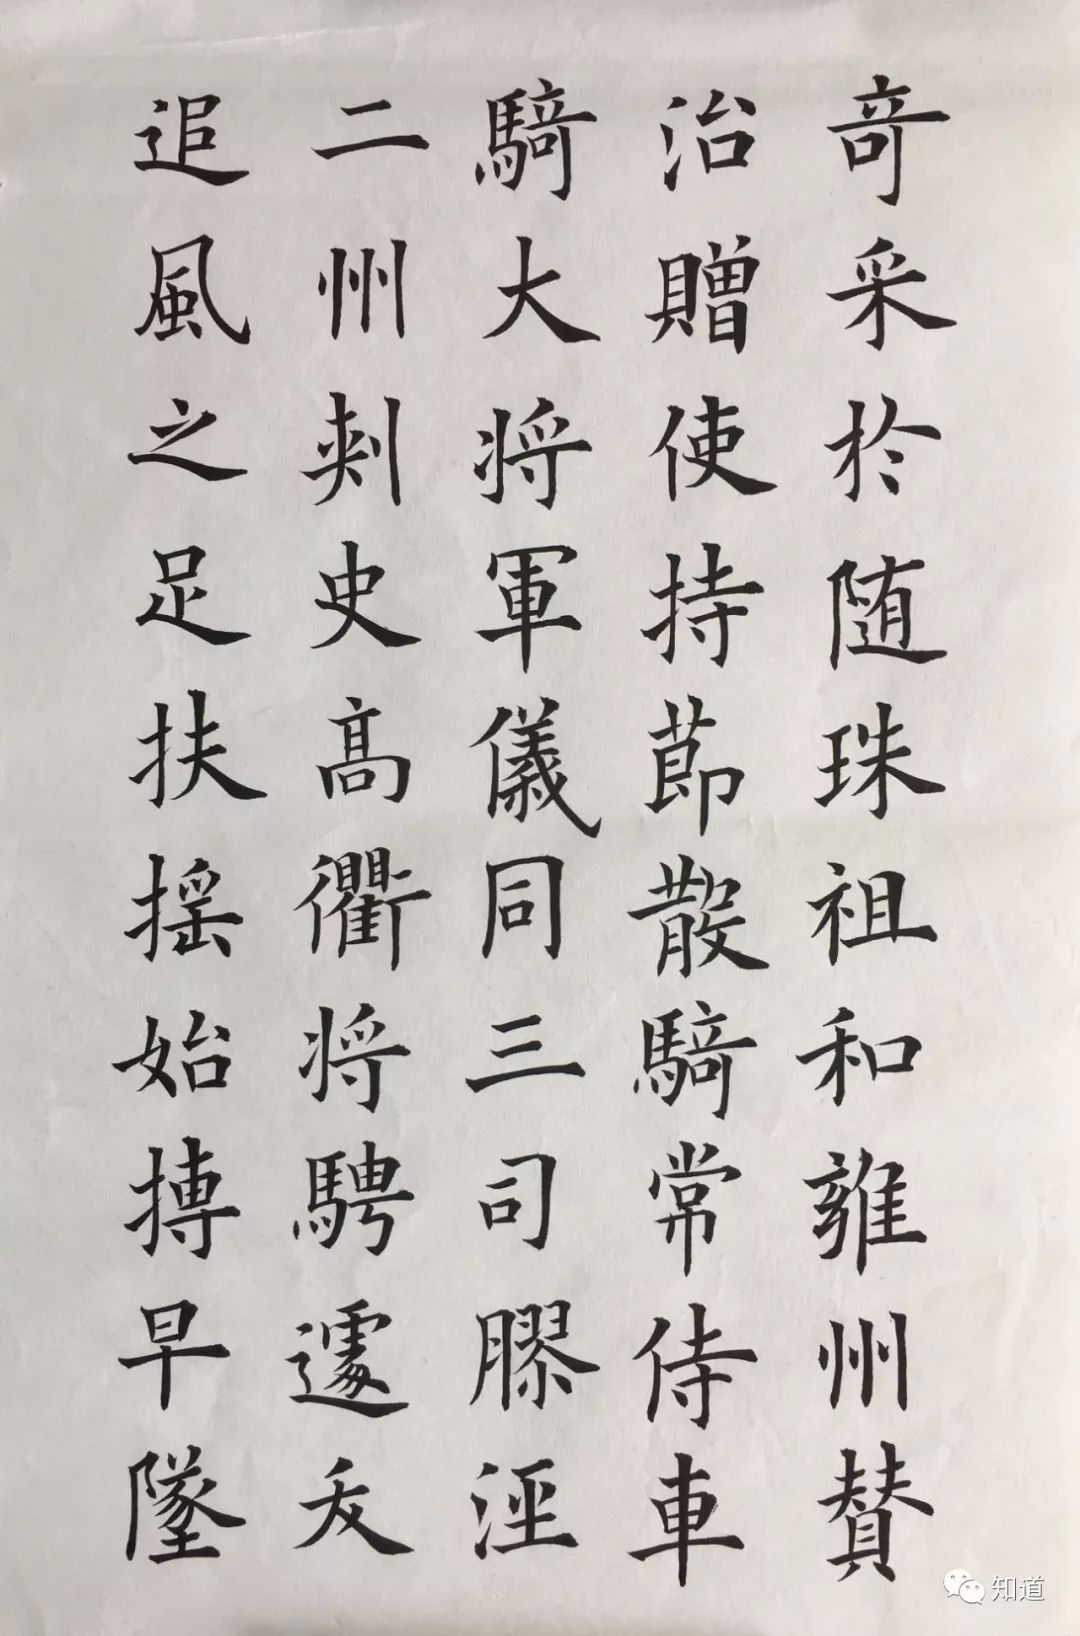 奇采於随珠祖和雍州賛
治贈使持節散騎常侍車
騎大将軍儀同三司膠涇
二州刺史髙衢将騁遽夭
追風之足扶摇始搏早墜
知道